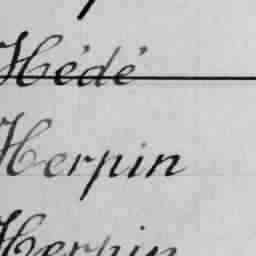 Hédé
Herpin
Herpin